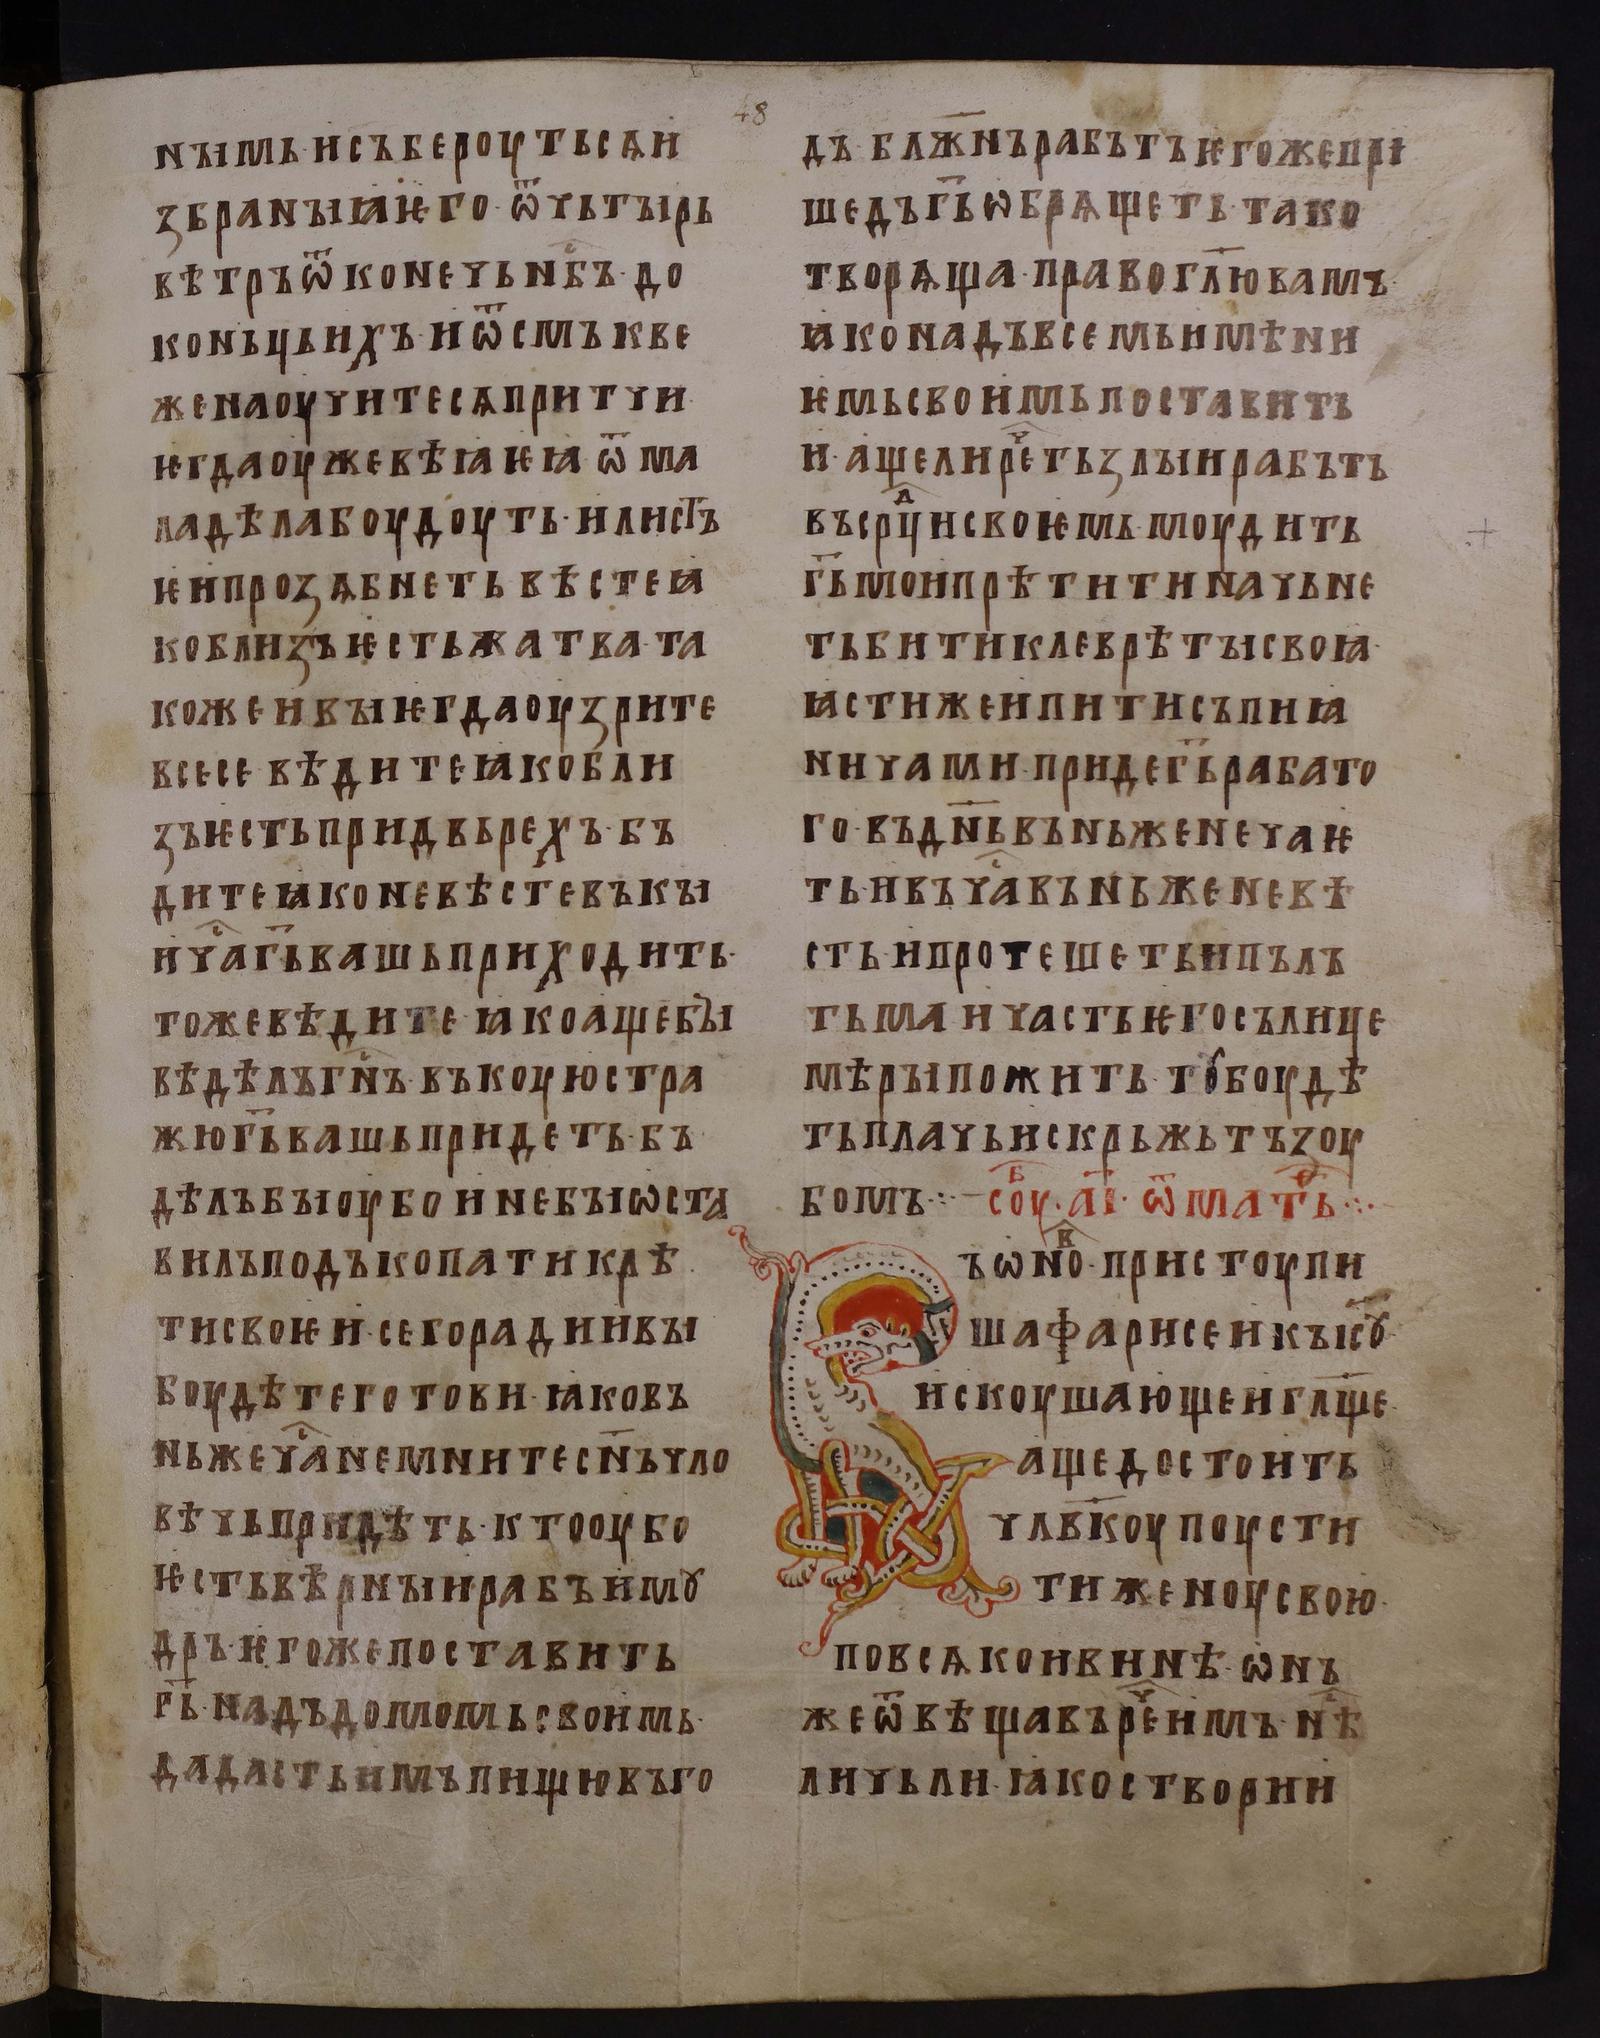 48
нъımь·исъбероуть сѧи
збранъıꙗѥго·ѿчьтъıрь
вѣтръѿконечьнбⷭ҇ъ·до
коньцьихъ·иѿсмъкве
женаоучитесѧпритчи·
ѥгдаоужевѣꙗѥꙗ·ѿма
ладѣлабоудоуть·илистъ
ѥипрозѧбнетьвѣстеꙗ
коблизъѥстьжатва·та
кожеивъıѥгдаоузрите
всесе·вѣдитеꙗкобли
зъѥстьпридвьрехъ·бъ
дитеꙗконевѣстевъкъı
ичⷭ҇агь҃вашьприходить·
тожевѣдите·ꙗкоащебъı
вѣдѣлъгнⷭ҇ъ·въкоуюстра
жюгь҃вашьпридеть·бъ
дѣлъбъıоубоинебъıѡста
вилъподъкопатикрѣ
тисвоѥи·сегорадиивъı
боудѣтеготови·ꙗковъ
ньжечⷭ҇анемнитесн҃ъчло
вѣчьпридѣть·ктооубо
ѥстьвѣрнъıирабъимꙋ
дръ·ѥгожепоставить
гь҃·надъдомомьсвоимь·
дадастьимъпищювъго
дъ·блж҃нърабътъѥгожепрı
шедъгь҃ѡбрѧщеть·тако
творѧща·правогл҃ювамъ·
ꙗконадъвсемьимѣни
ѥмьсвоимьпоставить
и·ащелиреⷱ҇тьзлъıирабътъ
въсрⷣциисвоѥмь·моудить
гь҃моиприѣтитиначьне
тьбитиклеврѣтъıсвоꙗ·
ꙗстижеипитисъпиꙗ
ничами·придегь҃рабато
го·въдн҃ьвъньженечаѥ
ть·ивъчⷭ҇авъньженевѣ
сть·ипротешетьипълъ
тьмаичастьѥгосълице
мѣръıположить·тꙋбоудѣ
тьплачьискрьжьтъзоу
бомъ·:·соуⷠ·аı҃·ѿматⷴ҇ь·:·
ъѡноⷡ·пристоупи
шафарисеикъıсꙋ҃·
искоушающеигл҃ще·
ащедостоить
члв҃коупоусти
тиженоусвою·
повсѧкоивинѣ·ѡнъ
жеѿвѣщавъреⷱ҇имъ·нѣⷭ҇
личьли·ꙗкоствории